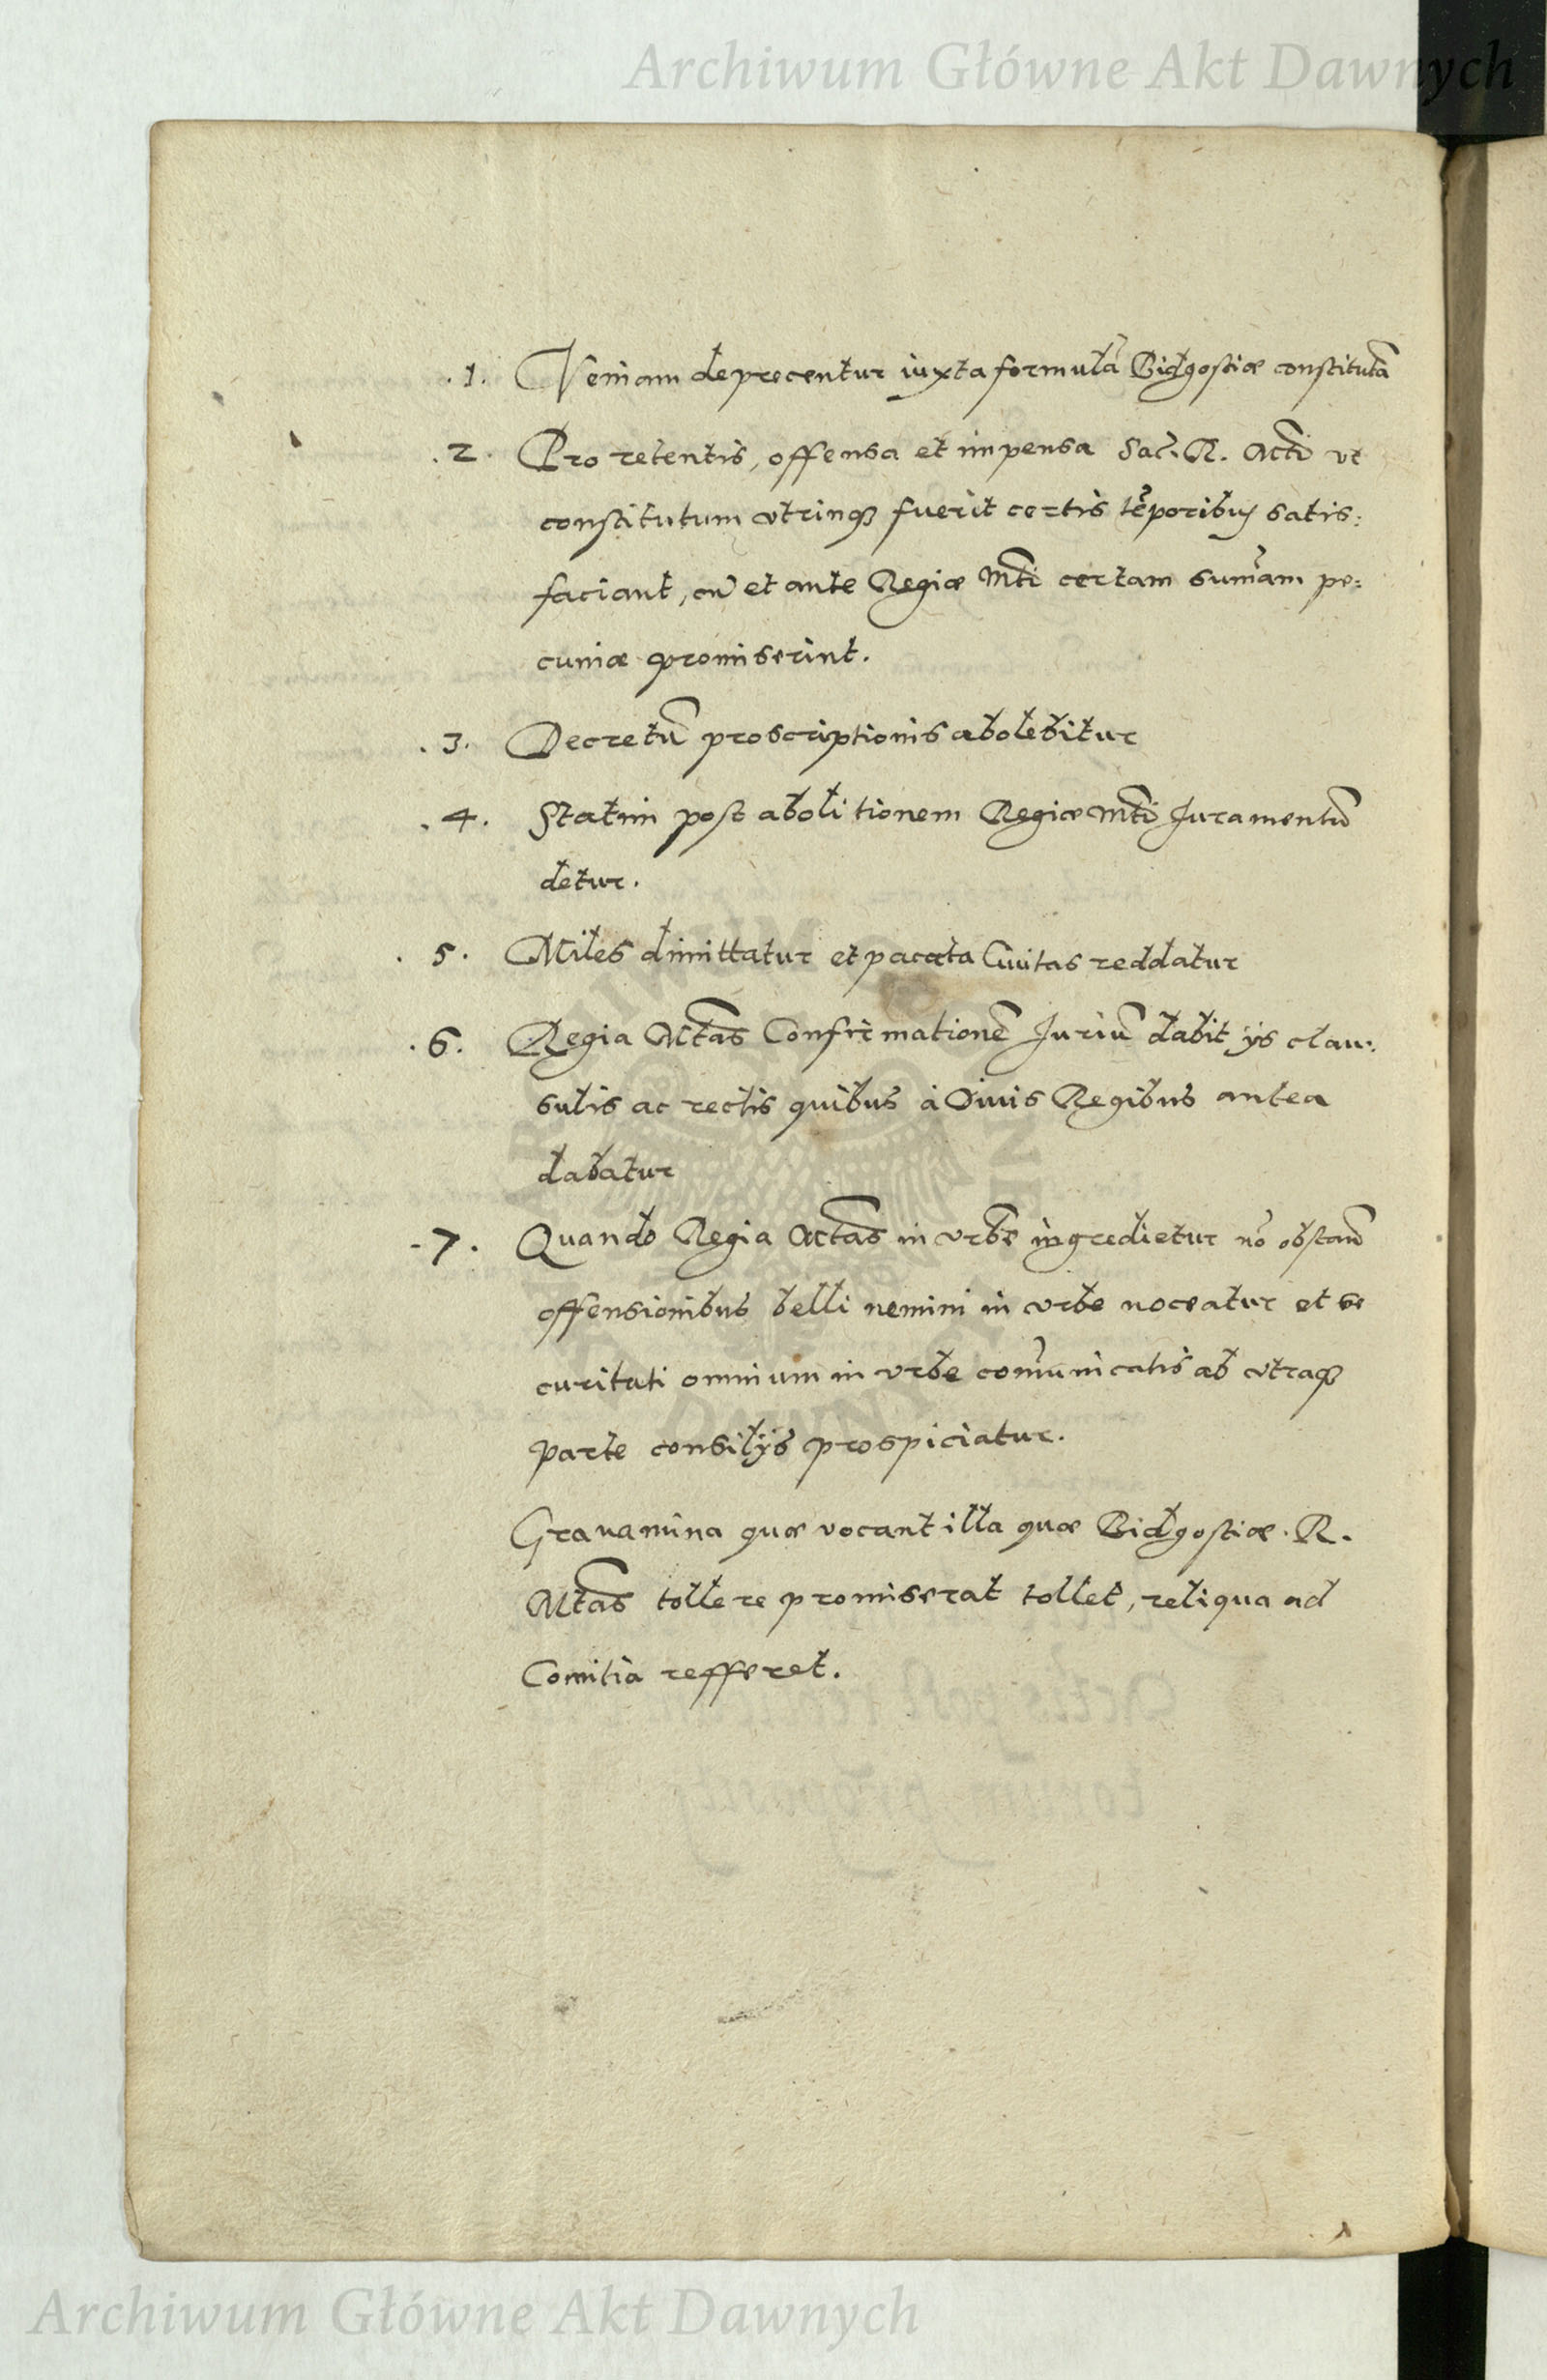 Archiwum Główne Akt Dawnych
.1. Veniam deprecentur iuxta formulā Bidgostiæ constitutā
.2. Pro retentis, offensa et impensa Sac̃. R. Mti vt
constitutum vtrinqꝫ fuerit certis tẽporibus satis:
faciant, cũ et ante Regiæ Mti certam sum̃am pe:
cuniæ promiserint.
.3. Decretũ proscriptionis abolebitur
.4. Statim post abolitionem Regiæ Mti Juramentũ
detur.
.5. Miles dimittatur et pacata Ciuitas reddatur
.6. Regia Mtas Confirmationẽ Juriũ dabit ijs clau:
sulis ac rectis quibus à Diuis Regibus antea
dabatur
.7. Quando Regia Mtas in vrbẽ ingredietur nõ obstan̄
offensionibus belli nemini in vrbe noceatur et se
curitati omnium in vrbe com̃unicatis ab vtraqꝫ
parte consilijs prospiciatur.
Grauamina quæ vocant illa quæ Bidgostiæ. R.
Mtas tollere promiserat tollet, reliqua ad
Comitia refferet.
Archiwum Główne Akt Dawnych